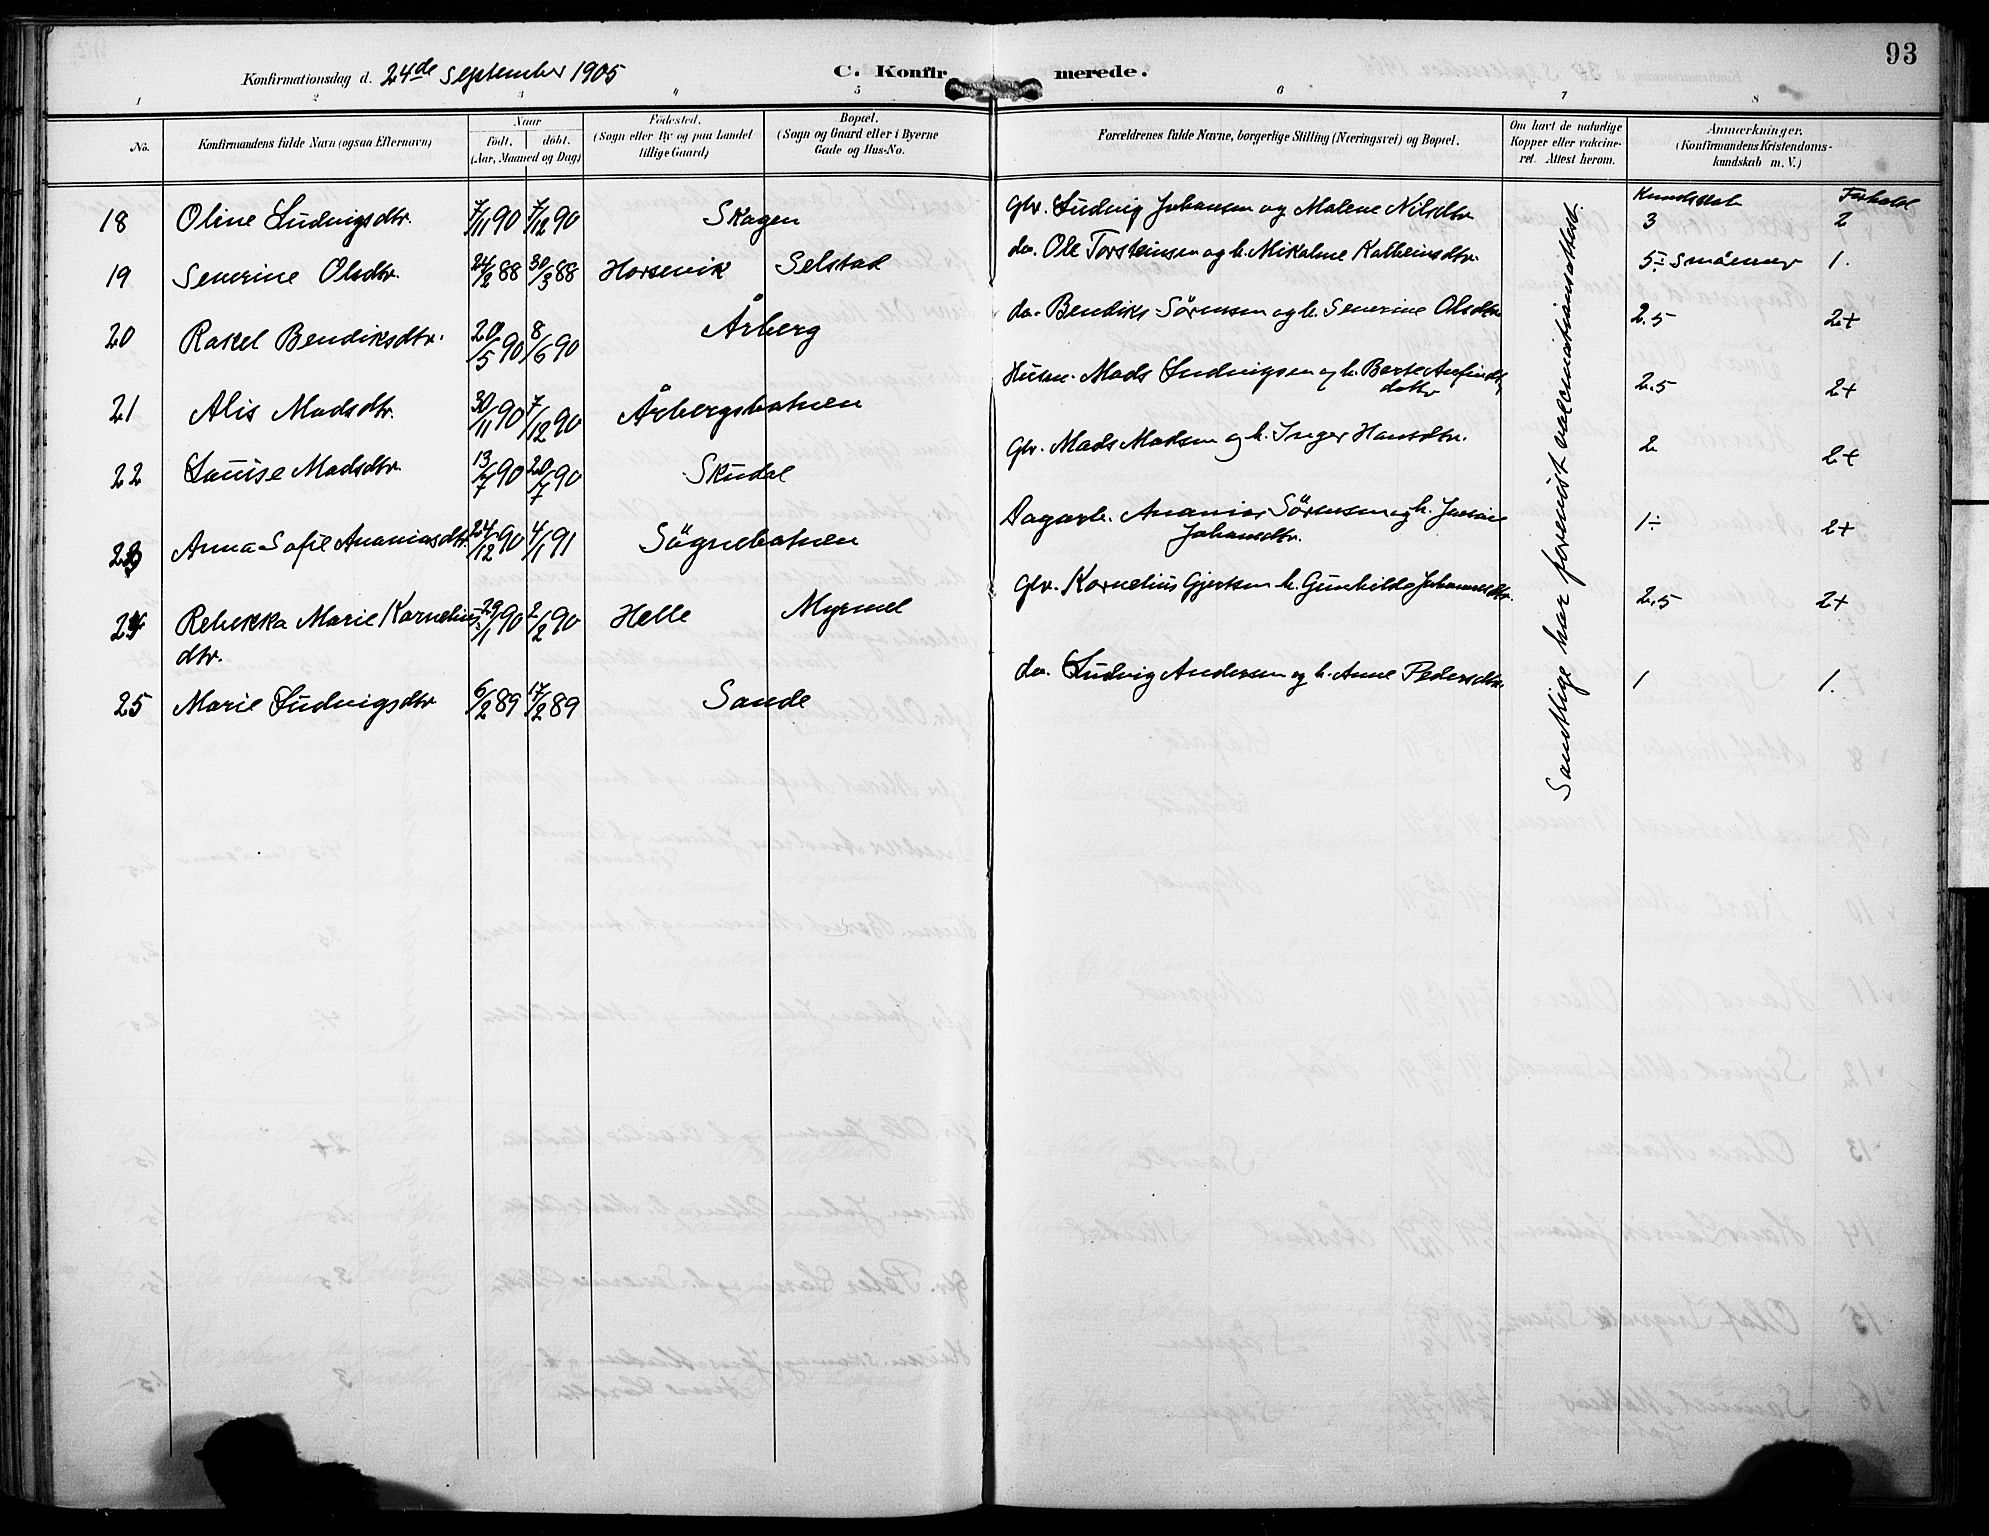 93
Konfirmationsdag d. 24de September 1905 C. Konfirmerede.
1 2 3 4 5 6 7 8
No. Konfirmandens fulde Navn (ogsaa Efternavn) Naar født, døbt. (Aar, Maaned og Dag) Fødested. (Sogn eller By og paa Landet tillige Gaard) Bopæl. (Sogn og Gaard eller i Byerne Gade og Hus-No. Forældrenes fulde Navne, borgerlige Stilling (Næringsvei) og Bopæl. Om havt de naturlige Kopper eller vakcineret. Attest herom. Anmærkninger. (Konfirmandens Kristendomskundskab m. V.)
Kundskab Forhold
18 Oline Ludvigsdtr. 7/11 90 7/12 90 Skagen Gbr. Ludvig Johansen og Malene Nilsdtr. 3 2
19 Severine Olsdtr. 24/2 88 30/3 88 Horsevik Selstad do. Ole Torsteinsen og h. Mikaline 5÷ 1.
20 Rakel Bendiksdtr. 20/5 90 8/6 90 Årberg do. Bendiks Sørensen og h. Severine Olsdtr 2.5 2+
21 Alis Madsdtr. 30/11 90 7/12 90 Årbergsbotnen Husm. Mads Ludvigsen og h. Berte 2.5 2+
22 Louise Madsdtr. 13/7 90 20/7 90 Skudal Gbr. Mads Madsen og h. Inger Hansdtr. 2 2+
23 Anna Sofie Ananiasdtr. 24/12 90 4/1 91 Sögnebotnen Dagarb. Ananias Sörensen og h. Johansdtr. 1÷ 2+
24 Rebekka Marie Kornelius
dtr. 29/1 90 2/2 90 Helle Myrmel Gbr. Kornelius Gjertsen h. Gunhilde Johannesdtr. 2.5 2+
25 Marie Ludvigsdtr 6/2 89 17/2 89 Sande do. Ludvig Andersen og h. Anne Pedersdtr. 1 1.
Samtlige har forevist vaccinationsattest.